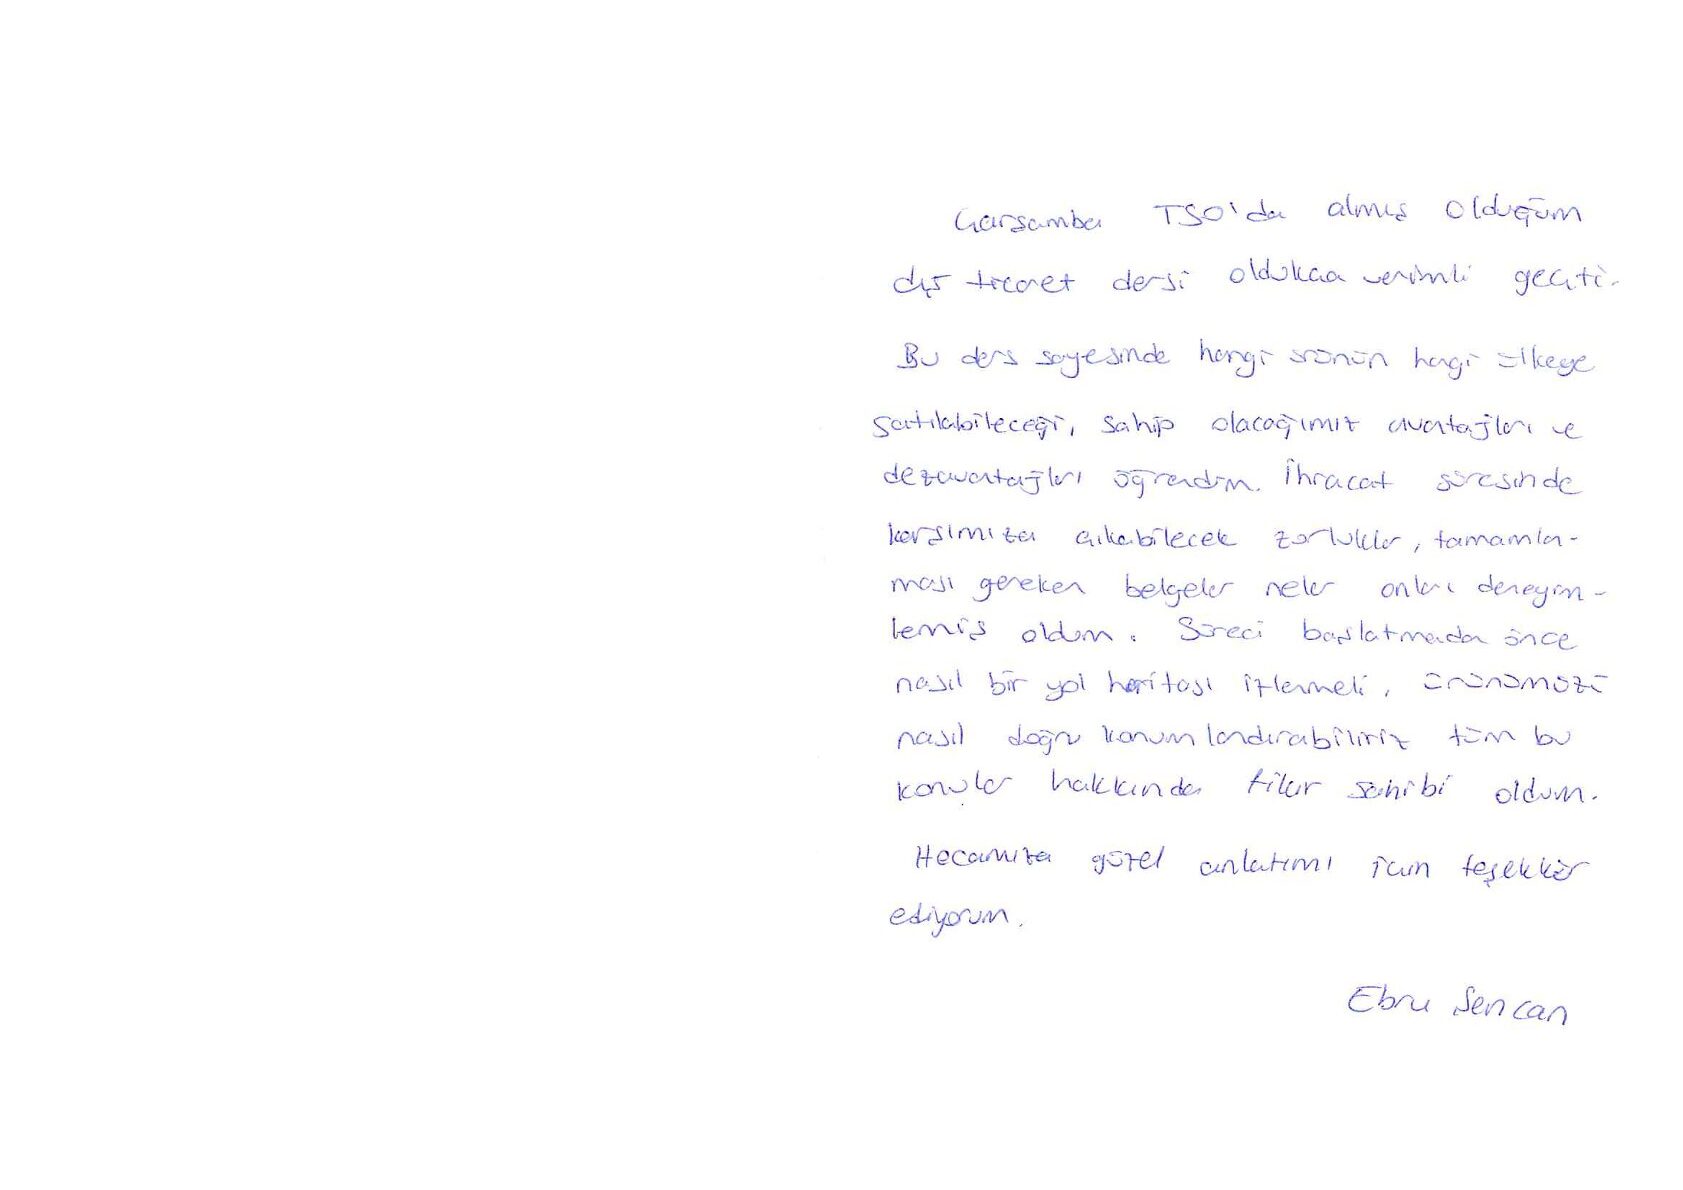 Çarşamba TSO'da almış olduğum
dış ticaret dersi oldukça verimli geçti.
Bu ders sayesinde hangi ürünün hangi ülkeye
satılabileceği, sahip olacağımız avantajları ve
dezavantajları öğrendim. İhracat süresinde
karşımıza çıkabilecek zorluklar, tamamlan-
ması gereken belgeler neler onları deneyim-
lemiş oldum. Süreci başlatmada önce
nasıl bir yol haritası izlenmeli, ürünümüzü
nasıl doğru konumlandırabiliriz tüm bu
konular hakkında fikir sahibi oldum.
Hocamıza güzel anlatımı için teşekkür
ediyorum.
Ebru Şencan